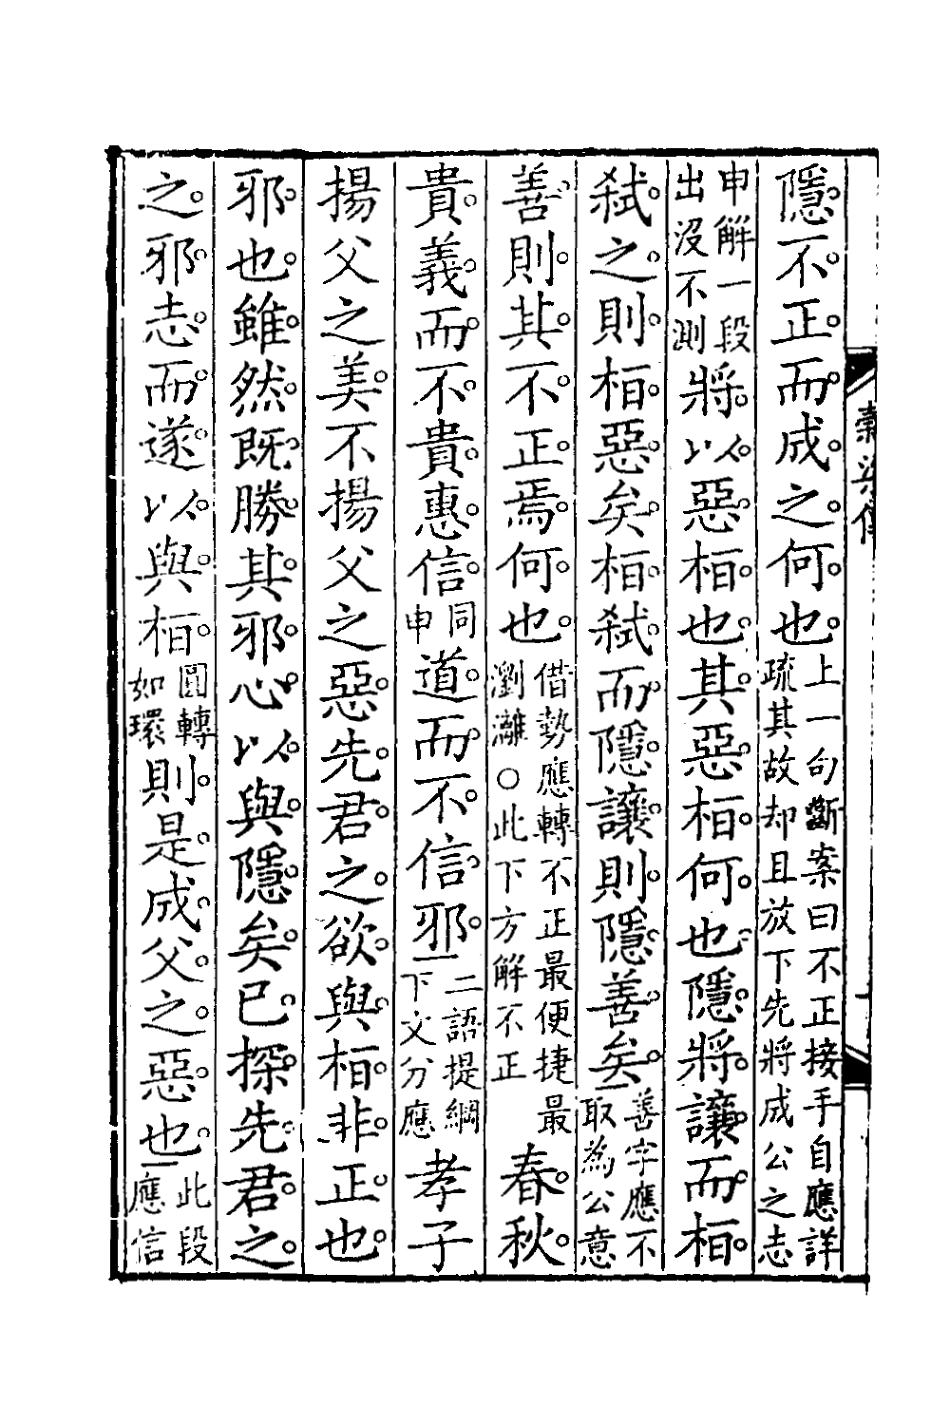 穀梁傳
隱不正而成之何也上一句斷案曰不正接手自應詳疏其故却且放下先將成公之志
申解一段出沒不測將以惡桓也其惡桓何也隱將讓而桓
弒之則桓惡矣桓弒而隱讓則隱善矣善字應不取為公意
善則其不正焉何也借勢應轉不正最便捷最瀏灕○此下方解不正春秋
貴義而不貴惠信同申道而不信邪二語提綱下文分應孝子
揚父之美不揚父之惡先君之欲與桓非正也
邪也雖然既勝其邪心以與隱矣已探先君之
之邪志而遂以與桓圓轉如環則是成父之惡也此段應信